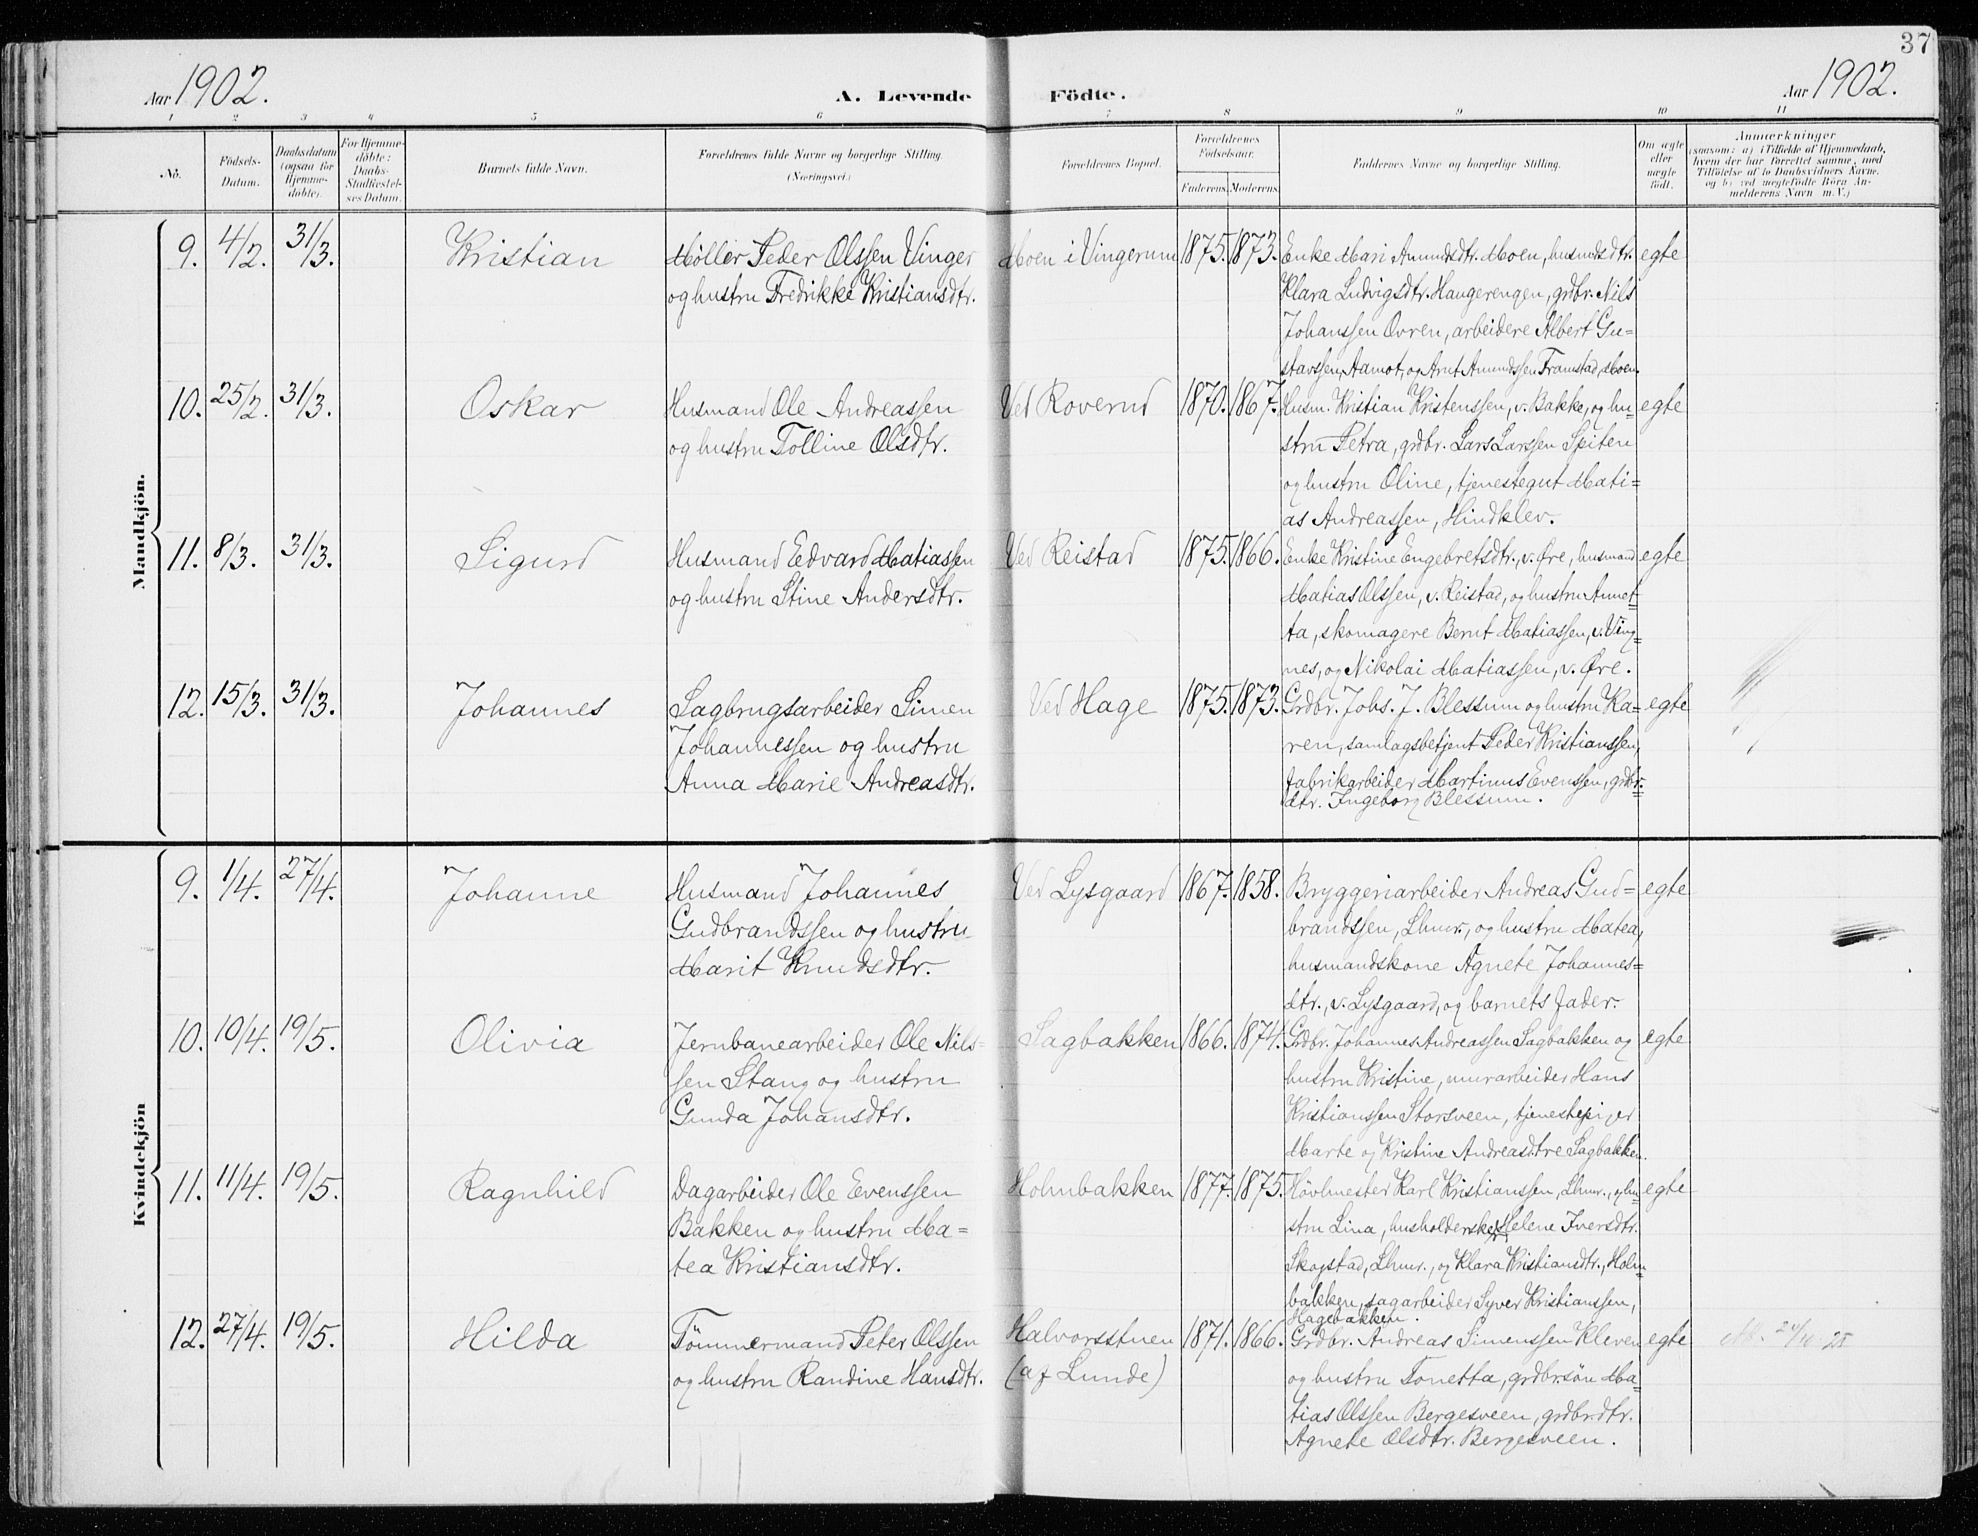 37
Aar 1902.
A. Levende Födte.
Aar 1902.
1 2 3 4 5 6 7 8 9 10 11
No.
Födsels-
Datum.
Daabsdatum
(ogsaa for
Hjemme-
döbte).
For Hjemme-
döbte:
Daabs-
Stadfæstel-
ses Datum.
Barnets fulde Navn.
Forældrenes fulde Navne og borgerlige Stilling.
(Næringsvei.)
Forældrenes Bopæl.
Forældrenes
Födselsaar.
Faderens. Moderens.
Faddernes Navne og borgerlige Stilling.
Om ægte
eller
uægte
født.
Anmærkninger
(saasom: a) i Tilfælde af Hjemmedaab,
hvem der har forrettet samme, med
Tilföielse af to Daabsvidners Navne,
og b) ved uægtefödte Börn An-
melderens Navn m. V.)
Mandkjön.
9. 4/2. 31/3. Kristian
Möller Peder Olssen Vinger
og hustru Fredrikke Kristiansdtr.
Moen i Vingerum 1875. 1873.
Enke Mari Amundsdtr. Moen, husmdsdtr.
Klara Ludvigsdtr. Haugerengen, grdbr. Nils
Johanssen Ovren, arbeidere Albert Gu=
stavssen, Aamot, og Arnt Amundssen Framstad, Moen.
egte
10. 25/2. 31/3. Oskar
Husmand Ole Andreassen
og hustru Tolline Olsdtr.
Ved Roverud 1870. 1867.
Husm. Kristian Kristenssen, v. Bakke, og hu=
stru Petra, grdbr. Lars Larssen Spiten
og hustru Oline, tjenestegut Mati=
as Andreassen, Hindklev.
egte
11. 8/3. 31/3. Sigurd
Husmand Edvard Matiassen
og hustru Stine Andersdtr.
Ved Reistad 1875. 1866.
Enke Kristine Engebretsdtr., v. Øre, husmand
Matias Olssen, v. Reistad, og hustru Annet=
ta, skomagere Bernt Matiassen, v. Ving=
nes, og Nikolai Matiassen, v. Øre.
egte
12. 15/3. 31/3. Johannes
Sagbrugsarbeider Simen
Johannessen og hustru
Anna Marie Andreasdtr.
Ved Hage 1875. 1873.
Grdbr. Johs. J. Blessum og hustru Ka=
ren, samlagsbetjent Peder Kristianssen,
fabrikarbeider Martinus Evenssen, grdbr.=
dtr. Ingeborg Blessum.
egte
Kvindekjön
9. 1/4. 27/4. Johanne
Husmand Johannes
Gudbrandssen og hustru
Marit Knudsdtr.
Ved Lysgaard 1867. 1858.
Bryggeriarbeider Andreas Gud=
brandssen, Lhmr., og hustru Matea,
husmandskone Agnete Johannes=
dtr., v. Lysgaard, og barnets fader.
egte
10. 10/4. 19/5. Olivia
Jernbanearbeider Ole Nils=
sen Stang og hustru
Gunda Johansdtr.
Sagbakken 1866. 1874.
Grdbr. Johannes Andreassen Sagbakken og
hustru Kristine, murarbeider Hans
Kristianssen Storsveen, tjenestepiger
Marte og Kristine Andreasdtre Sagbakken.
egte
11. 11/4. 19/5. Ragnhild
Dagarbeider Ole Evenssen
Bakken og hustru Ma=
tea Kristiansdtr.
Holmbakken 1877. 1875.
Hövlmester Karl Kristianssen, Lhmr., og hu=
stru Lina, husholderske Helene Iversdtr.
Skogstad, Lhmr., og Klara Kristiansdtr., Holm=
bakken, sagarbeider Syver Kristianssen,
Hagebakken.
egte
12. 27/4. 19/5. Hilda
Tömmermand Peter Olssen
og hustru Randine Hansdtr.
Halvorsstuen
(af Lunde)
1871. 1866.
Grdbr. Andreas Simenssen Kleven
og hustru Tonetta, grdbr.sön Ma=
tias Olssen Bergesveen, grdbr.dtr.
Agnete Olsdtr. Bergesveen.
egte